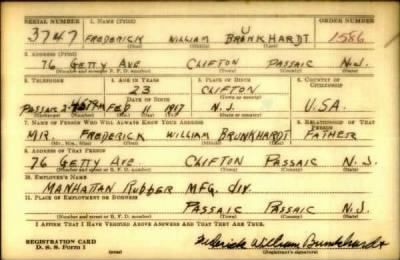 SERIAL NUMBER 1. NAME (Print) ORDER NUMBER
U
3747 FREDERICK WILLIAM BRUNKHARDT 1586
(First) (Middle) (Last)
2. ADDRESS (Print)
76 GETTY AVE CLIFTON PASSAIC N.J.
(Number and street or R. F. D. number) (Town) (County) (State)
3. TELEPHONE 4. AGE IN YEARS 5. PLACE OF BIRTH 6. COUNTRY OF CITIZENSHIP
23 CLIFTON
DATE OF BIRTH (Town or county)
PASSAIC FEB 11 1917 N.J. U.S.A.
7. NAME OF PERSON WHO WILL ALWAYS KNOW YOUR ADDRESS 8. RELATIONSHIP OF THAT PERSON
MR. FREDERICK WILLIAM BRUNKHARDT FATHER
(Mr., Mrs., Miss) (First) (Middle) (Last)
9. ADDRESS OF THAT PERSON
76 GETTY AVE. CLIFTON PASSAIC N.J.
(Number and street or R. F. D. number) (Town) (County) (State)
10. EMPLOYER'S NAME
MANHATTAN RUBBER MFG. DIV.
11. PLACE OF EMPLOYMENT OR BUSINESS
PASSAIC PASSAIC N.J.
(Number and street or R. F. D. number) (Town) (County) (State)
I AFFIRM THAT I HAVE VERIFIED ABOVE ANSWERS AND THAT THEY ARE TRUE.
REGISTRATION CARD
D. S. S. Form 1 (over) Frederick William Brunkhardt
(Registrant's signature)